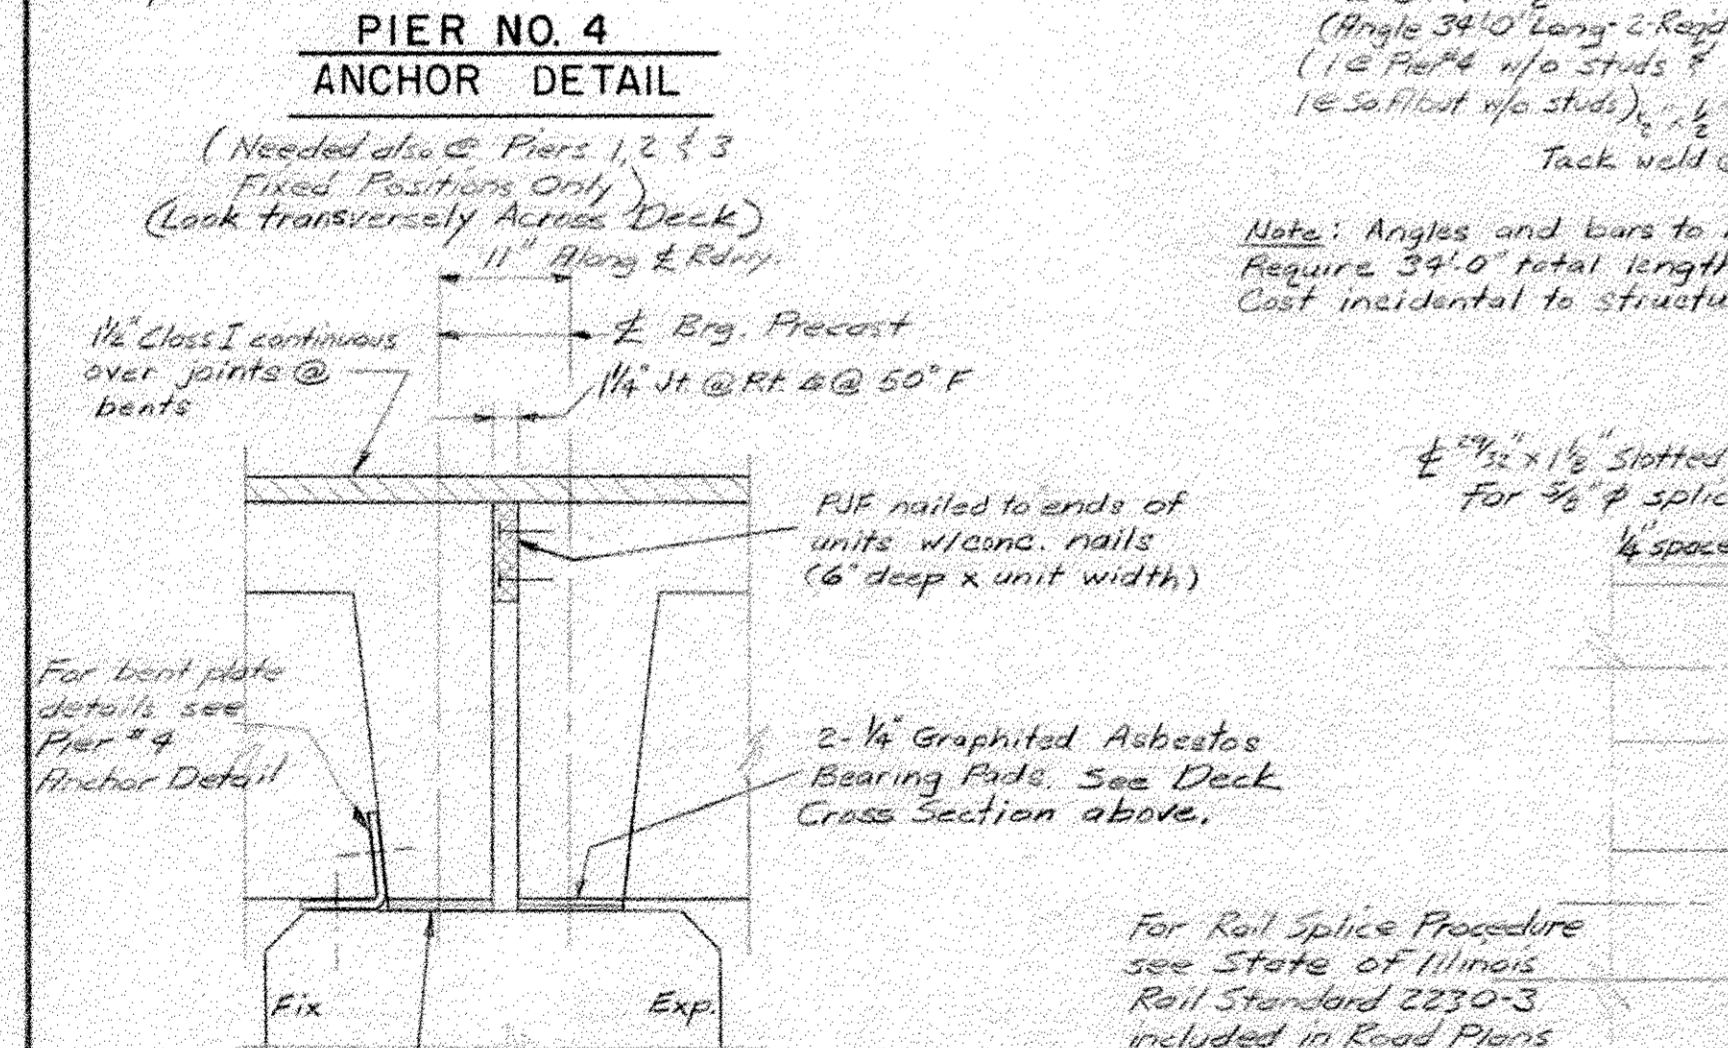 PIER NO. 4
ANCHOR DETAIL
(Needed also @ Piers 1, 2 & 3
Fixed Positions Only)
(Look transversely Across Deck)
11" Along ℄ Rdwy.
℄ Brg. Precast
1¼" Jt @ Rt. ∠s @ 50° F
1½" Class I continuous
over joints @
bents
PJF nailed to ends of
units w/conc. nails
(6" deep x unit width)
For bent plate
details see
Pier #4
Anchor Detail
2-¼" Graphited Asbestos
Bearing Pads. See Deck
Cross Section above.
Fix
Exp.
(Angle 34'-0" Long - 2-Req'd
(1 @ Pier #4 w/o studs &
1 @ So. Abut w/o studs)
Tack weld
Note: Angles and bars to
Require 34'-0" total length
Cost incidental to structu
℄ 29/32" x 1⅛" Slotted
For ⅝" ϕ splic
¼" space
For Rail Splice Procedure
see State of Illinois
Rail Standard 2230-3
included in Road Plans